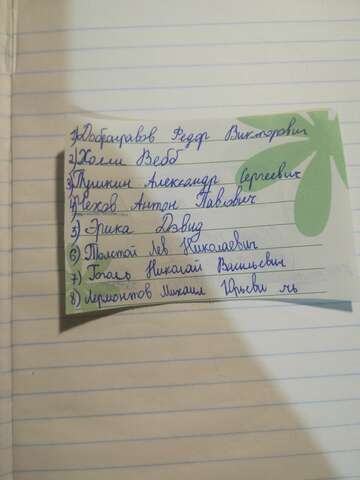 1) Добронравов Федор Викторович
2) Холли Вебб
3) Пушкин Александр Сергеевич
4) Чехов Антон Павлович
5) Эрика Дэвид
6) Толстой Лев Николаевич
7) Гоголь Николай Васильевич
8) Лермонтов Михаил Юрьеви чь